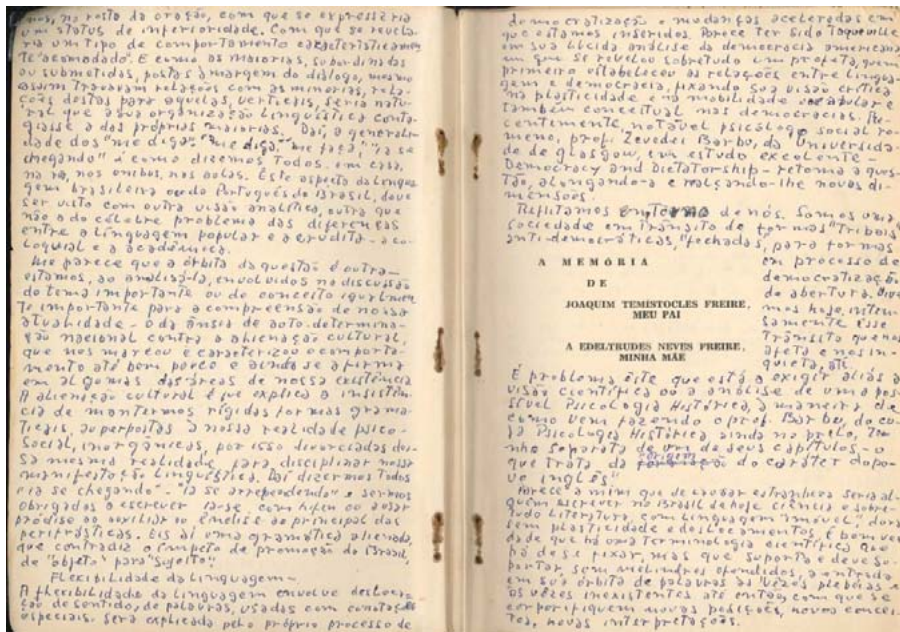 nos, no rosto da oração, com que se expressaria
um status de inferioridade. Com que se revela-
ria um tipo de comportamento caracteristicamen
te "acomodado". E como as maiorias, subordinadas
ou submetidas, postas à margem do diálogo, mesmo
assim travavam relações com as minorias, rela-
ções destas para aquelas, verticais, seria natu-
ral que a sua organização linguística conta-
giasse a das próprias maiorias. Daí, a generali-
dade dos "me diga", "me faça", "ia se
chegando" é como dizemos todos, em casa,
na rua, nos ônibus, nas aulas. Este aspecto da lingua
gem brasileira ou do Português do Brasil, deve
ser visto com outra visão analítica, outra que
não a do célebre problema das diferenças
entre a linguagem popular e a erudita - a co-
loquial e a acadêmica.
Me parece que a órbita da questão é outra -
estamos, ao analisá-la, envolvidos na discussão
do tema importante ou do conceito igualmen
te importante para a compreensão de nossa
atualidade - o da ânsia de auto-determina-
ção nacional contra a alienação cultural,
que nos marcou e caracterizou o comporta-
mento até bem pouco e ainda se afirma
em algumas das áreas de nossa existência
A alienação cultural é que explica a insistên-
cia de mantermos rígidas formas grama-
ticais, superpostas à nossa realidade psico-
social, inorgânicas, por isso divorciadas des-
sa mesma realidade, para disciplinar nossa
manifestação linguística. Daí dizermos todos
"ia se chegando" - "ia se arrependendo" e sermos
obrigados a escrever ia-se com hífen ou a usar
próclise ao auxiliar ou ênclise ao principal das
perifrásticas. Eis aí uma gramática alienada,
que contradiz o ímpeto de promoção do Brasil,
de "objeto" para "sujeito".
Flexibilidade da linguagem -
A flexibilidade da linguagem envolve desloca-
ção de sentido, de palavras, usadas com conotações
especiais. Será explicada pelo próprio processo de
democratização e mudanças aceleradas em
que estamos inseridos. Parece ter sido Toqueville
em sua lúcida análise da democracia americana
em que se revelou sobretudo um profeta, quem
primeiro estabeleceu as relações entre lingua-
gem e democracia, fixando sua visão crítica
na plasticidade e na mobilidade vocabular e
também conceitual nas democracias. Re-
centemente, notável psicólogo social ro-
meno, prof. Zevedei Barbu, da Universida-
de de Glasgow, em estudo excelente -
Democracy and Dictatorship - retoma a ques-
tão, alongando-a e realçando-lhe novas di-
mensões.
Reflitamos em torno de nós. Somos uma
sociedade em trânsito de formas "tribais"
anti-democráticas, "fechadas", para formas
em processo de
democratização
de abertura. Vive
mos hoje, inten-
samente esse
trânsito que nos
afeta e nos in-
quieta, até.
A MEMÓRIA
DE
JOAQUIM TEMISTOCLES FREIRE,
MEU PAI
A EDELTRUDES NEVES FREIRE,
MINHA MÃE
É problema este que está a exigir aliás a
visão científica ou a análise de uma pos
sível Psicologia Histórica, à maneira de
como vem fazendo o prof. Barbu, de cu-
ja Psicologia Histórica ainda no prelo, te-
nho separata de um de seus capítulos - o
que trata da origem do caráter do po-
vo inglês"
Parece a mim que de causar estranheza seria al-
guém escrever no Brasil de hoje ciência e sobre-
tudo Literatura com linguagem "imóvel", dura
sem plasticidade e deslocamentos. É bem ver
dade que há uma terminologia científica que
há de se fixar, mas que suporta e deve su-
portar, sem melindres ofendidos, a entrada
em sua órbita de palavras às vezes plebéias e
às vezes inexistentes até então, com que se
corporifiquem novas posições, novos concei-
tos, novas interpretações.